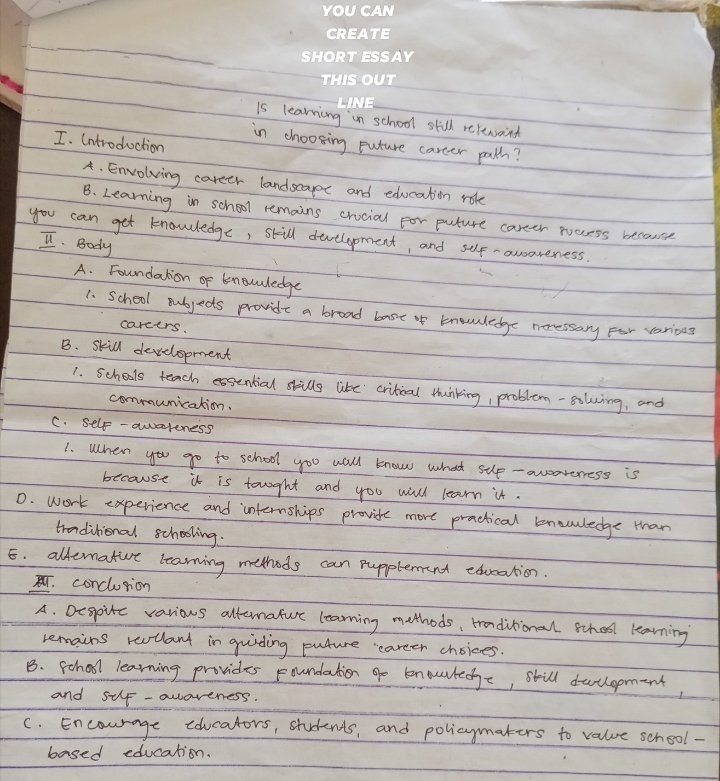 YOU CAN
CREATE
SHORT ESSAY
THIS OUT
LINE
Is learning in school still relevant
in choosing future career path?
I. Introduction
A. Envolving career landscape and education role
B. Learning in school remains crucial for future career success because
you can get knowledge, skill development, and self-awareness.
II. Body
A. Foundation of knowledge
1. School subjects provide a broad base of knowledge necessary for various
careers.
B. Skill development
1. Schools teach essential skills like critical thinking, problem-solving, and
communication.
C. Self-awareness
1. When you go to school you will know what self-awareness is
because it is taught and you will learn it.
D. Work experience and internships provide more practical knowledge than
traditional schooling.
E. alternative learning methods can supplement education.
III. conclusion
A. Despite various alternative learning methods, traditional school learning
remains revllant in guiding future career choices.
B. School learning provides foundation of knowledge, skill development,
and self-awareness.
C. Encourage educators, students, and policymakers to value school-
based education.